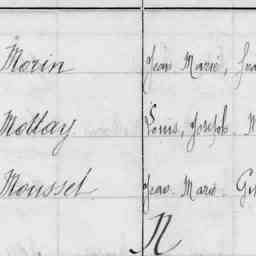 Morin Jean Marie, Fra
Mottay Louis, Joseph. M
Mousset Jean Marie. G
N